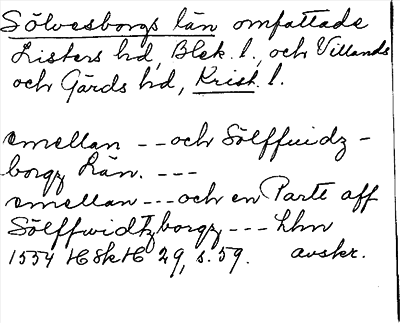 Sölvesborgs län omfattade
Listers hd, Blek. l., och Villands
och Gärds hd, Krist. l.
emellan -- och Sölffuidz-
borgz Län. ---
emellan --- och en Parte aff
Sölffwidtzborgz --- Lhn
1554 HSkH 29, s. 59. avskr.